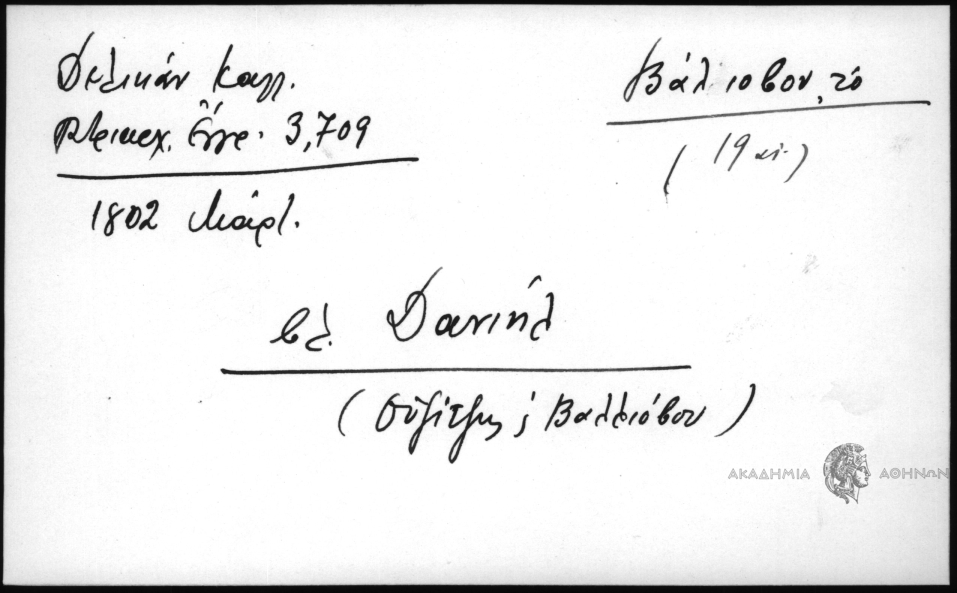 Δελικάν Καλλ.
Πατριαρχ. Ἔγγρ. 3,709
1802 Μάρτ.
Βάλιοβον, τό
(19 αἰ.)
βλ. Δανιήλ
(Οὐζίτζης ἡ Βαλλιόβου)
ΑΚΑΔΗΜΙΑ ΑΘΗΝΩΝ